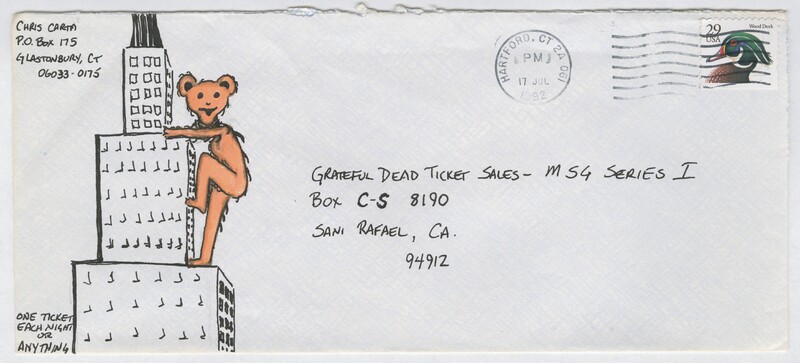 CHRIS CARTA
P.O. BOX 175
GLASTONBURY, CT
06033-0175
HARTFORD, CT 2A 061
PM
17 JUL
1992
29
USA
Wood Duck
GRATEFUL DEAD TICKET SALES - MSG SERIES I
BOX C-S 8190
SANI RAFAEL, CA.
94912
ONE TICKET
EACH NIGHT
OR
ANYTHING